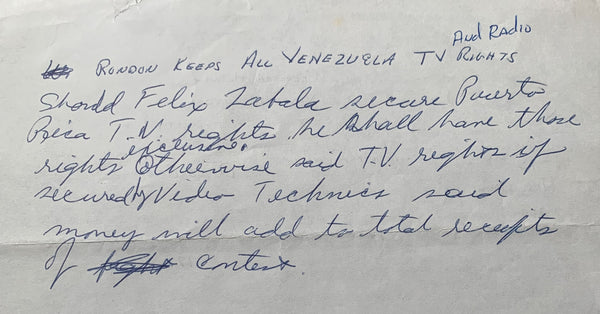 And Radio
Rondon Keeps All Venezuela TV Rights
Should Felix Zabala secure Puerto
Rica T.V. rights he shall have those
exclusive.
rights Otherwise said T.V. rights if
secured by Video Technics said
money will add to total receipts
of contest.